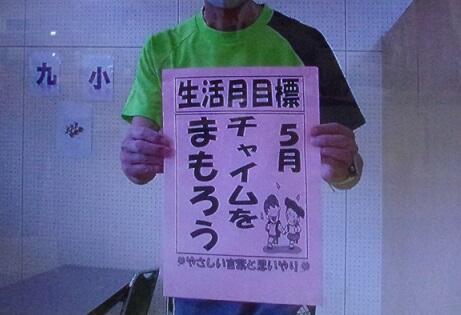 九小
生活月目標
5月
チャイムを
まもろう
やさしい言葉と思いやり